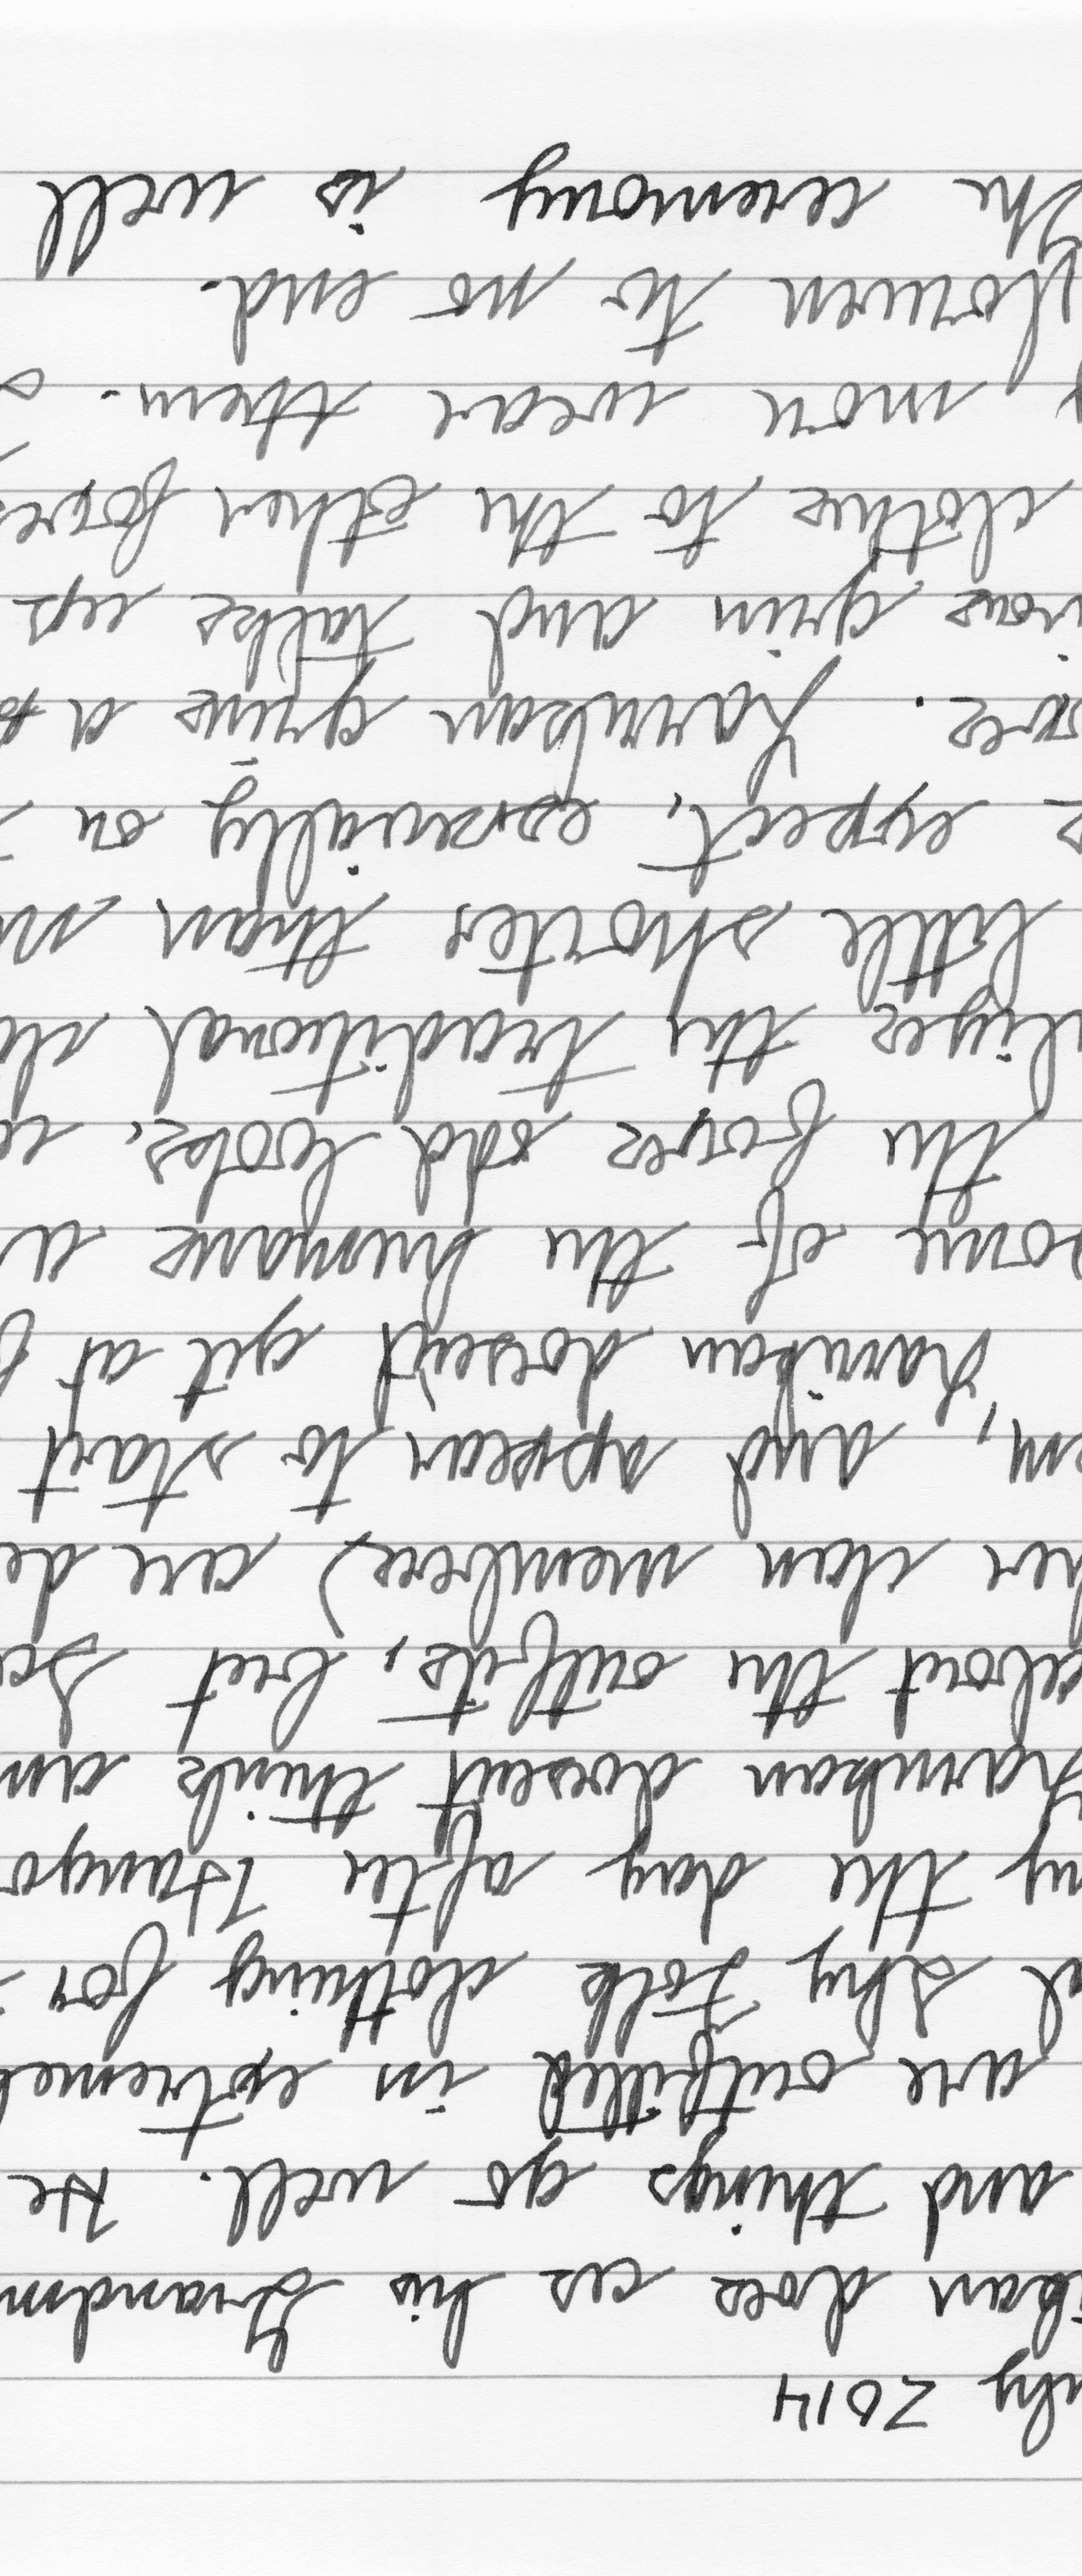 uly 2014
ikan does as his Grandm
and things go well. He
are outfitted in extremel
al Shy Folk clothing for
ny the day after Itango
Harukan doesn't think an
about the outfits, but So
her clan members) are de
em, and appear to start
Harukan doesn't get at f
some of the humans a
the boys odd looks. u
alizes the traditional clo
little shorter than m
s expect, especially on
oys. Harukan gives a
ious grin and talks up
clothes to the other boys
, more wear them.
to no end.
The ceremony is well